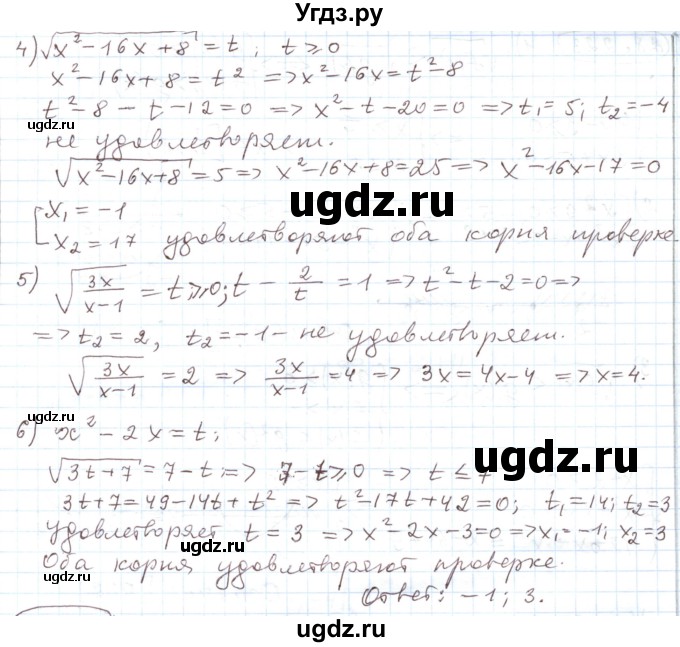 Угдз.ру
4) √(x² - 16x + 8) = t ; t ⩾ 0
x² - 16x + 8 = t² => x² - 16x = t² - 8
t² - 8 - t - 12 = 0 => x² - t - 20 = 0 => t₁ = 5; t₂ = -4
ugdz.ru
ugdz.ru
не удовлетворяет.
√(x² - 16x + 8) = 5 => x² - 16x + 8 = 25 => x² - 16x - 17 = 0
ugdz.ru
[x₁ = -1
x₂ = 17 удовлетворяют оба корня проверке
5) √(3x/(x-1)) = t ⩾ 0; t - 2/t = 1 => t² - t - 2 = 0 =>
=> t₂ = 2, t₂ = -1 - не удовлетворяет.
√(3x/(x-1)) = 2 => 3x/(x-1) = 4 => 3x = 4x - 4 => x = 4.
ugdz.ru
ugdz.ru
6) x² - 2x = t;
ugdz.ru
√(3t + 7) = 7 - t => 7 - t ⩾ 0 => t ≤ 7
3t + 7 = 49 - 14t + t² => t² - 17t + 42 = 0; t₁ = 14; t₂ = 3
Удовлетворяет t = 3 => x² - 2x - 3 = 0 => x₁ = -1; x₂ = 3
ugdz.ru
Оба корня удовлетворяют проверке.
ugdz.ru
Ответ: -1; 3.
ugdz.ru